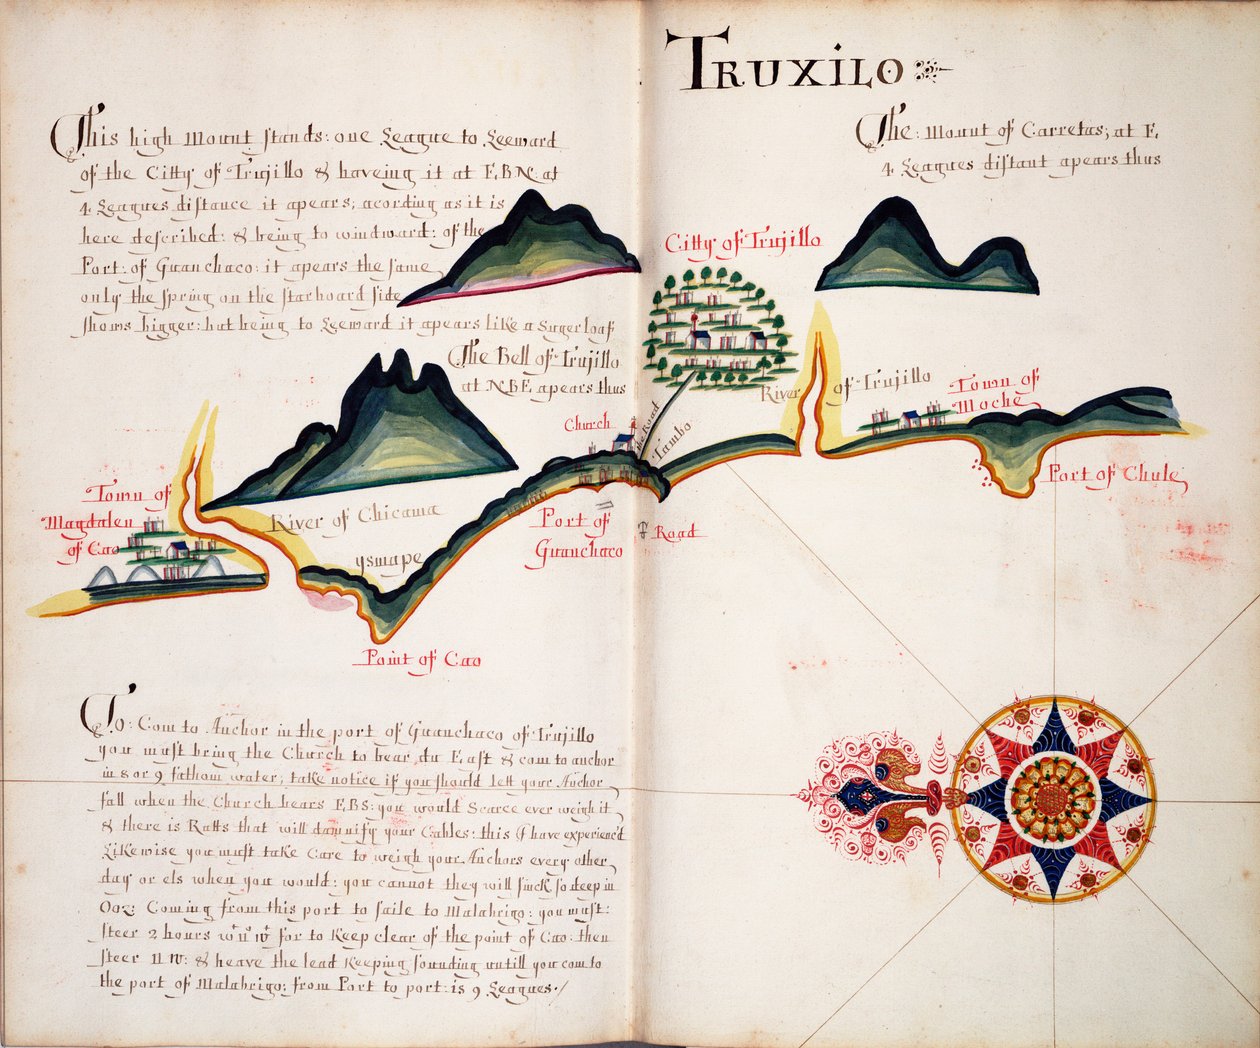 TRUXILO
This high Mount stands: one League to Leeward
of the Citty of Trujillo & haveing it at E,B,N: at
4 Leagues distance it apears; acording as it is
here described: & being to windward: of the
Port: of Guanchaco: it apears the same
only the spring on the starboard side
shows bigger: but being to Leeward it apears like a Sugerloaf
The Bell of Trujillo
at N.B.E, apears thus
The: Mount of Carretas; at E.
4 Leagues distant apears thus
Citty of Trujillo
River of Trujillo
Town of
Moche
Port of Chule
Church
the Road
Tambo
Port of
Guanchaco
Road
Town of
Magdalen
of Cao
River of Chicama
ysmape
Point of Cao
To: Com to Anchor in the port of Guanchaco of Trujillo
you must bring the Church to bear, du East & com to anchor
in 8 or 9 fathom water; take notice if you should lett your Anchor
fall when the Church bears E,B,S: you would Scarce ever weigh it
& there is Ratts that will damnify your Cables: this I have experienc'd
Likewise you must take Care to weigh your Anchors every other
day or els when you would: you cannot they will sinck so deep in
Ooz: Coming from this port to saile to Malabrigo: you must:
steer 2 hours for to keep clear of the point of Cao: then
steer & heave the lead keeping sounding untill you com to
the port of Malabrigo: from Port to port: is 9 Leagues./